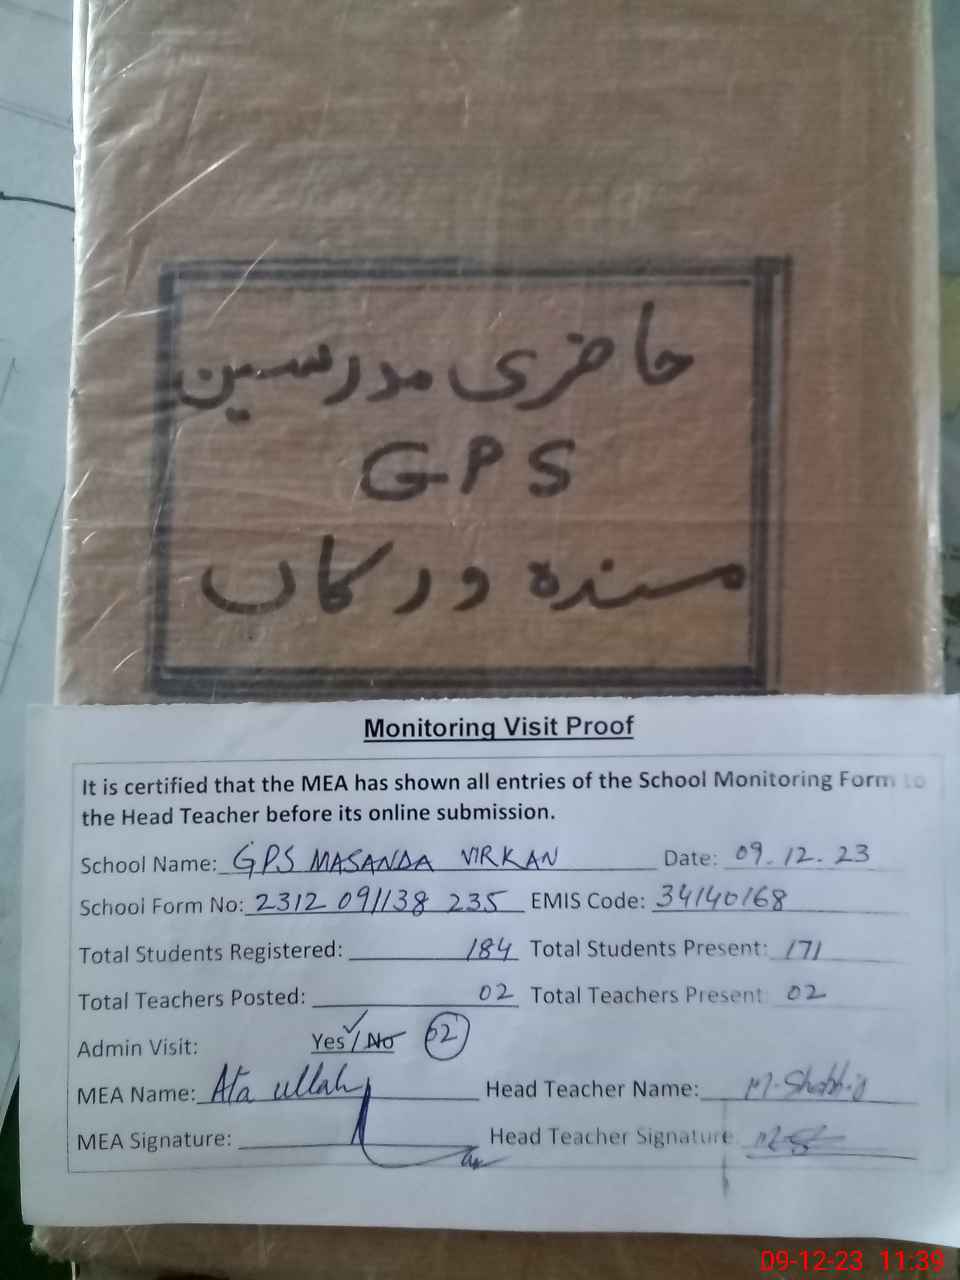 حاضری مدرسین
GPS
مسندہ ورکاں
Monitoring Visit Proof
It is certified that the MEA has shown all entries of the School Monitoring Form to
the Head Teacher before its online submission.
School Name: GPS MASANDA VIRKAN Date: 09.12.23
School Form No: 2312 091138 235 EMIS Code: 34140168
Total Students Registered: 184 Total Students Present: 171
Total Teachers Posted: 02 Total Teachers Present: 02
Admin Visit: Yes / No 02
MEA Name: Ata ullah Head Teacher Name: M. Shabbir
MEA Signature: Head Teacher Signature:
09-12-23 11:39